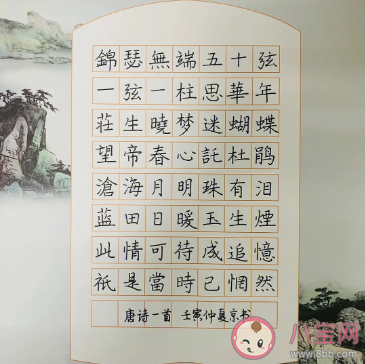 錦瑟無端五十弦
一弦一柱思華年
莊生曉梦迷蝴蝶
望帝春心託杜鹃
滄海月明珠有泪
蓝田日暖玉生煙
此情可待成追憶
衹是當時已惘然
唐诗一首 壬寅仲夏京书
八宝网
www.8bb.com